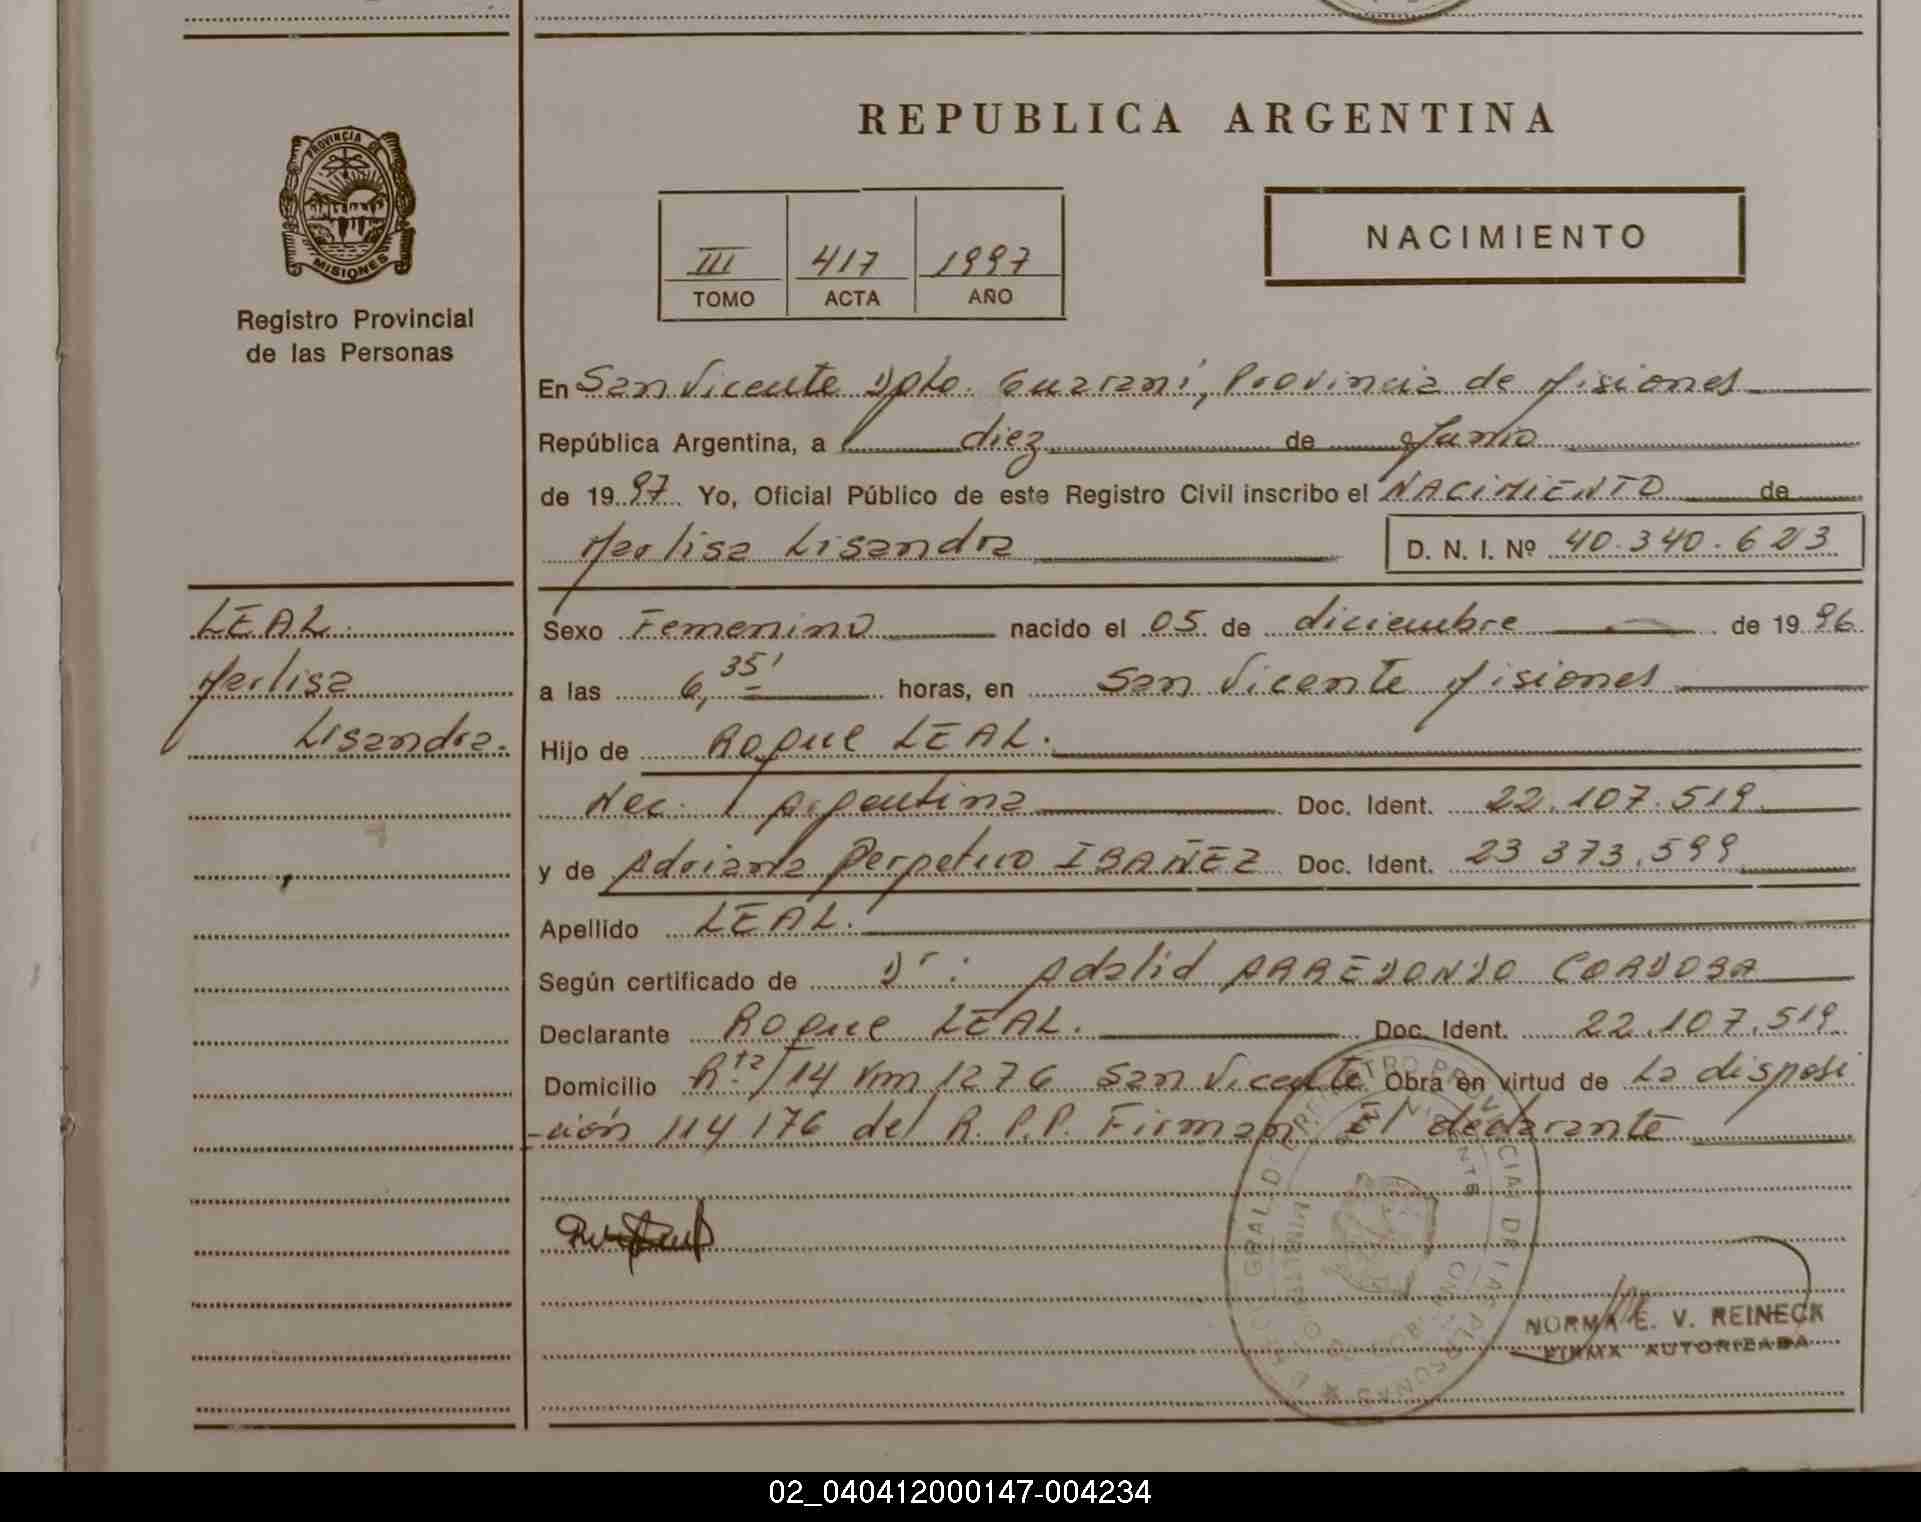 REPUBLICA ARGENTINA
PROVINCIA DE
MISIONES
Registro Provincial
de las Personas
III 417 1997
TOMO ACTA AÑO
NACIMIENTO
En San Vicente Dpto. Guaraní, Provincia de Misiones
República Argentina, a diez de Junio
de 1997 Yo, Oficial Público de este Registro Civil inscribo el NACIMIENTO de
Marlisa Lisandra D. N. I. Nº 40.340.623
LEAL.
Marlisa
Lisandra.
Sexo Femenino nacido el 05 de diciembre de 1996
a las 6,35' horas, en San Vicente Misiones
Hijo de Roque LEAL.
Nac. Argentina Doc. Ident. 22.107.519
y de Adriana Perpetuo IBAÑEZ Doc. Ident. 23 373.599
Apellido LEAL.
Según certificado de Dr: Adalid ARREDONDO CORDOBA
Declarante Roque LEAL. Doc. Ident. 22.107.519
Domicilio Rta/14 Km 1276 San Vicente Obra en virtud de La disposi
-ción 114/76 del R.P.P. Firman El declarante
NORMA E. V. REINECK
FIRMA AUTORIZADA
02_040412000147-004234